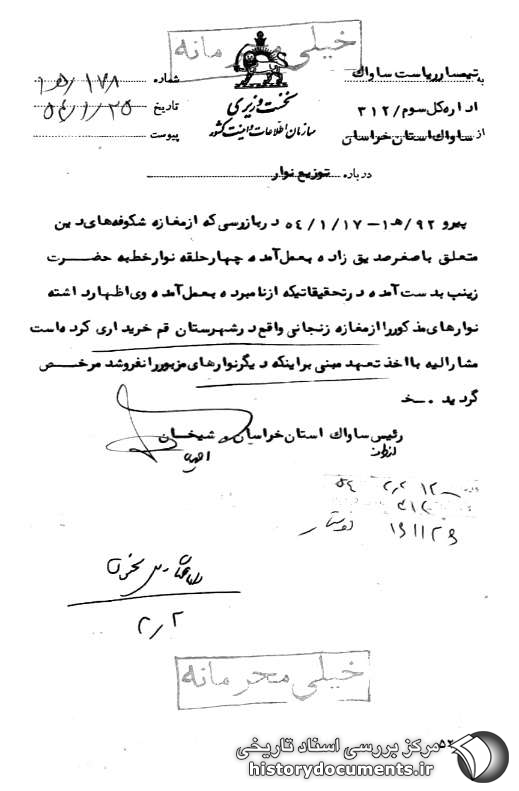 خیلی محرمانه
نخست وزیری
سازمان اطلاعات و امنیت کشور
به تیمسار ریاست ساواک
اداره کل سوم / ۳۱۲
از ساواک استان خراسان
شماره ۱۷۸/ه۱
تاریخ ۵۴/۱/۲۵
پیوست
درباره توزیع نوار
پیرو ۹۲/ه۱-۵۴/۱/۱۷ در بازرسی که از مغازه شکوفه‌های دین
متعلق به اصغر صدیق زاده بعمل آمده چهار حلقه نوار خطبه حضرت
زینب بدست آمده در تحقیقاتیکه از نامبرده بعمل آمده وی اظهار داشته
نوارهای مذکور را از مغازه زنجانی واقع در شهرستان قم خریداری کرده است
مشارالیه با اخذ تعهد مبنی بر اینکه دیگر نوارهای مزبور را نفروشد مرخص
گردید. خ
رئیس ساواک استان خراسان شیخان
از طرف
۳۱۲
۲/۲
خیلی محرمانه
۵۲
مرکز بررسی اسناد تاریخی
historydocuments.ir